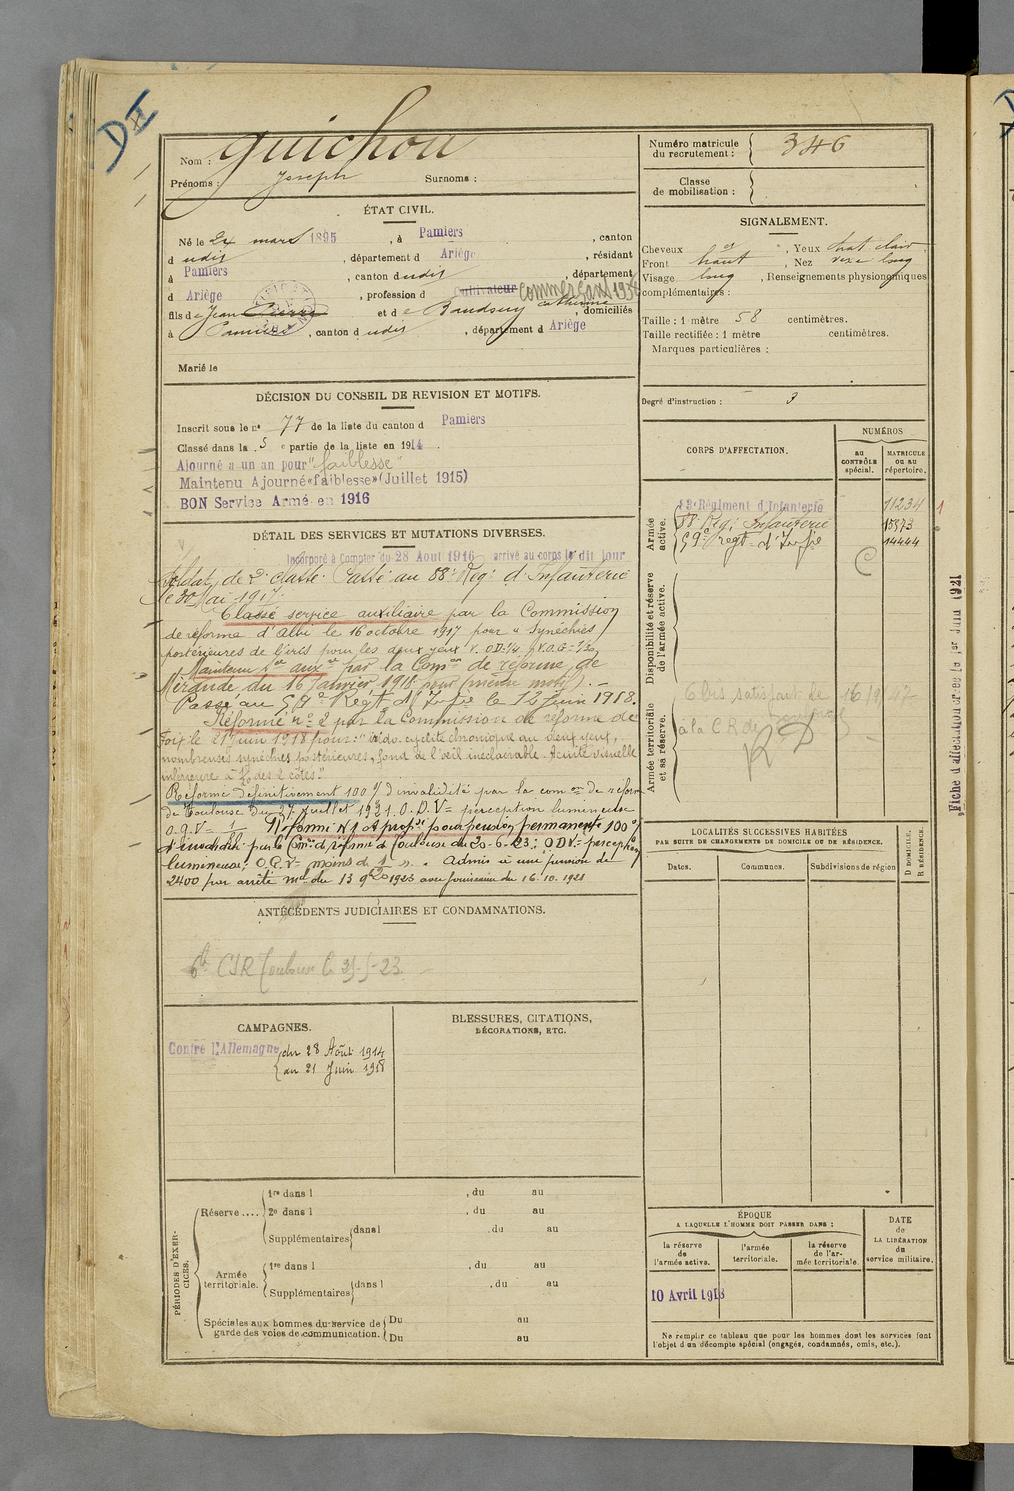 DII
Nom : Guichou
Prénoms : Joseph Surnoms :
Numéro matricule du recrutement : 346
Classe de mobilisation :
ÉTAT CIVIL.
Né le 24 mars 1895, à Pamiers, canton
d udit, département d Ariège, résidant
à Pamiers, canton d udit, département
d Ariège, profession d Cultivateur Commerçant
fils de Jean Pierre et de Baudouy Catherine, domiciliés
à Pamiers, canton d udit, département d Ariège
Marié le
SIGNALEMENT.
Cheveux , Yeux chat clair
Front haut, Nez long
Visage long, Renseignements physionomiques
complémentaires :
Taille : 1 mètre 58 centimètres.
Taille rectifiée : 1 mètre centimètres.
Marques particulières :
Degré d'instruction : 3
DÉCISION DU CONSEIL DE REVISION ET MOTIFS.
Inscrit sous le n° 77 de la liste du canton d Pamiers
Classé dans la 5 e partie de la liste en 1914
Ajourné a un an pour "faiblesse"
Maintenu Ajourné «faiblesse» (Juillet 1915)
BON Service Armé en 1916
DÉTAIL DES SERVICES ET MUTATIONS DIVERSES.
Incorporé à Compter du 28 Aout 1916 arrivé au corps le dit jour
Soldat de 2e classe. Passé au 88e Reg. d'Infanterie
le 30 Mai 1917.
Classé service auxiliaire par la Commission
de réforme d'Albi le 16 octobre 1917 pour "Synéchies
postérieures de l'iris pour les deux yeux V. OD=1/4 V.O.G=1/30
Maintenu Sce auxre par la Comon de réforme de
Mirande du 16 Janvier 1918 pour même motif.
Passé au 59e Régt d'Infie le 12 Juin 1918.
Réformé n° 2 par la Commission de réforme de
Foix le 21 Juin 1918 pour: "Irido-cyclite chronique aux deux yeux,
nombreuses synéchies postérieures, fond de l'œil inéclairable. Acuité visuelle
inférieure à des 2 côtés."
Réformé définitivement 100 % d'invalidité par la comon de réforme
de Toulouse du 27 Juillet 1921. O.D.V= perception lumineuse
O.G.V=
Réformé N°1 et propsé pour pension permanente 100 %
d'invalidité par la Comon de réforme de Toulouse du 20-6-23; ODV= perception
lumineuse; O.G.V= moins de 1 ". Admis à une pension de
2400 par arrêté mel du 13 9bre 1923 avec jouissance du 16.10.1921
CORPS D'AFFECTATION.
NUMÉROS
au CONTRÔLE spécial.
MATRICULE OU AU répertoire.
Armée active.
Régiment d'Infanterie 11234
88e Reg. Infanterie 15373
59e Regt d'Infie 14444
Disponibilité et réserve de l'armée active.
Armée territoriale et sa réserve.
à la C.R. de
RD
Fiche d'affectation créée le 1er Juin 1921
LOCALITÉS SUCCESSIVES HABITÉES
PAR SUITE DE CHANGEMENTS DE DOMICILE OU DE RÉSIDENCE.
Dates. Communes. Subdivisions de région D DOMICILE. R RÉSIDENCE.
ANTÉCÉDENTS JUDICIAIRES ET CONDAMNATIONS.
CSR Toulouse
CAMPAGNES.
Contre l'Allemagne
du 28 Août 1914
au 21 Juin 1918
BLESSURES, CITATIONS,
DÉCORATIONS, ETC.
PÉRIODES D'EXERCICES.
Réserve....
1re dans l , du au
2e dans l , du au
Supplémentaires dans l , du au
Armée territoriale.
1re dans l , du au
Supplémentaires dans l , du au
Spéciales aux hommes du service de garde des voies de communication.
Du au
Du au
ÉPOQUE
A LAQUELLE L'HOMME DOIT PASSER DANS :
la réserve de l'armée active.
l'armée territoriale.
la réserve de l'armée territoriale.
DATE de LA LIBÉRATION du service militaire.
10 Avril 1918
Ne remplir ce tableau que pour les hommes dont les services font
l'objet d'un décompte spécial (engagés, condamnés, omis, etc.).